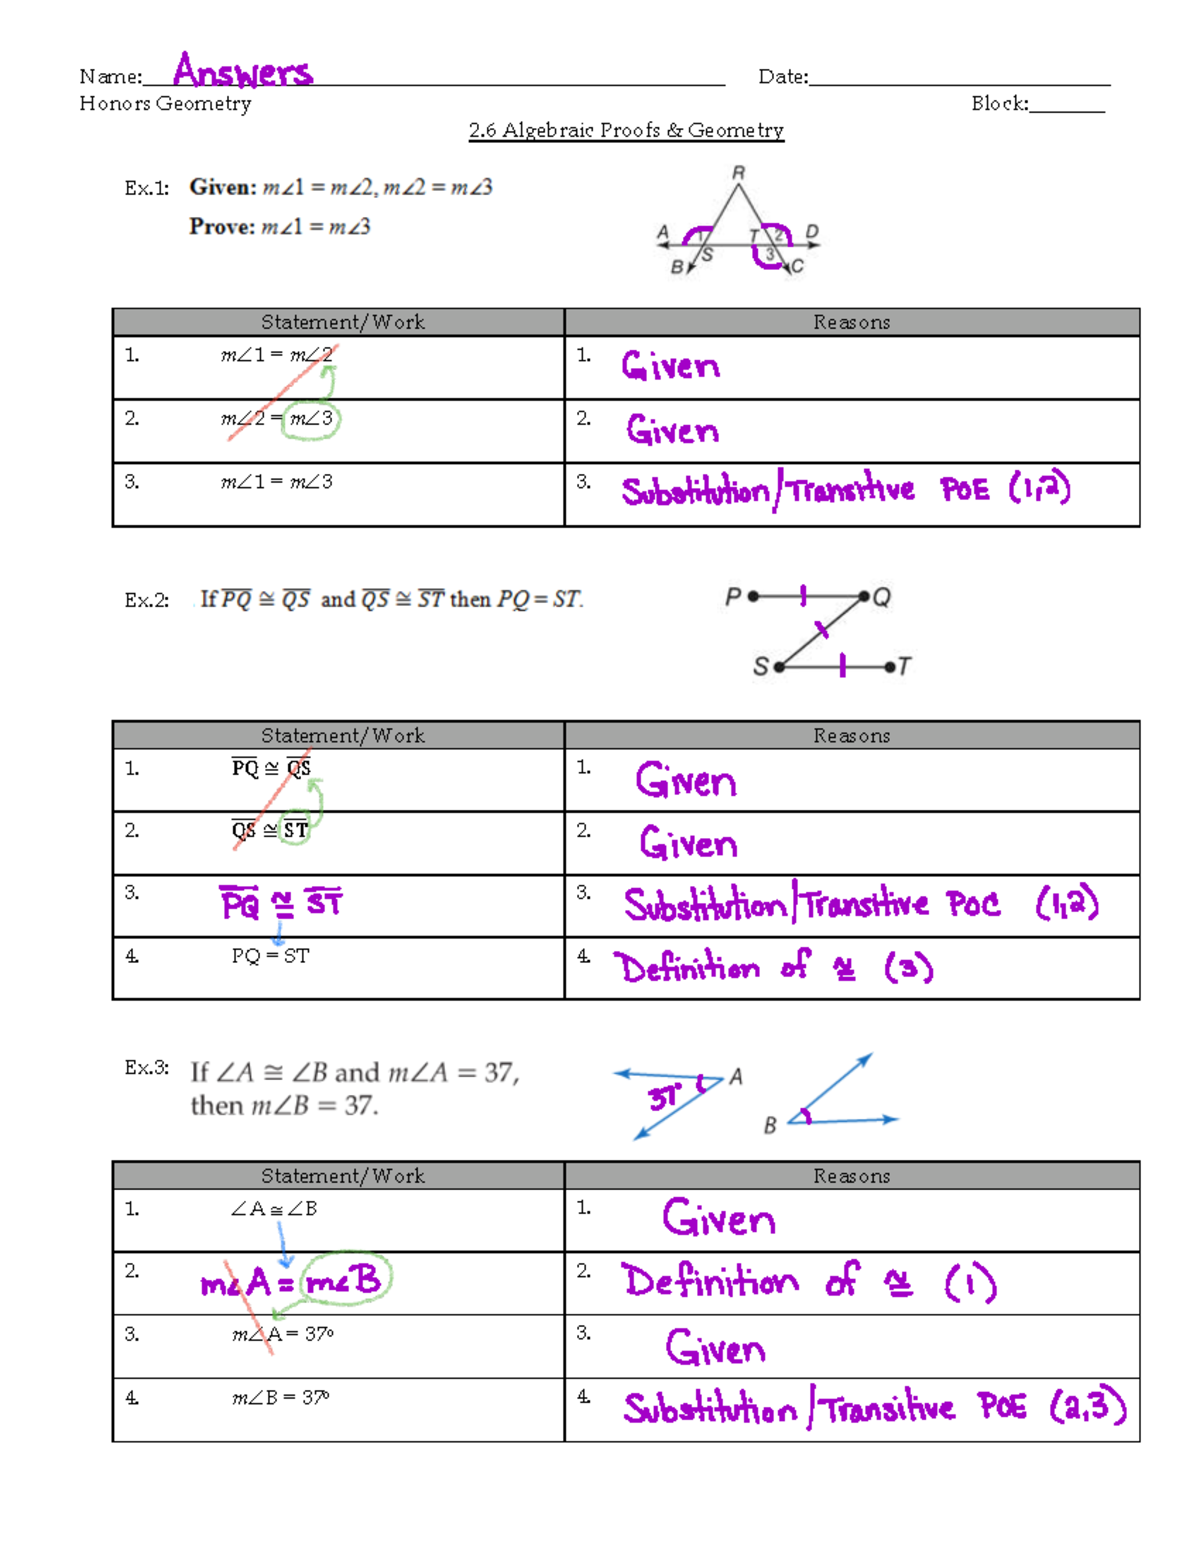 Name: Answers Date:
Honors Geometry Block:
2.6 Algebraic Proofs & Geometry
Ex.1: Given: m∠1 = m∠2, m∠2 = m∠3
Prove: m∠1 = m∠3
R
A 1 T 2 D
B S 3 C
Statement/Work Reasons
1. m∠1 = m∠2 1. Given
2. m∠2 = m∠3 2. Given
3. m∠1 = m∠3 3. Substitution/Transitive PoE (1,2)
Ex.2: If PQ ≅ QS and QS ≅ ST then PQ = ST.
P Q
S T
Statement/Work Reasons
1. PQ ≅ QS 1. Given
2. QS ≅ ST 2. Given
3. PQ ≅ ST 3. Substitution/Transitive PoC (1,2)
4. PQ = ST 4. Definition of ≅ (3)
Ex.3: If ∠A ≅ ∠B and m∠A = 37,
then m∠B = 37.
37° A
B
Statement/Work Reasons
1. ∠A ≅ ∠B 1. Given
2. m∠A = m∠B 2. Definition of ≅ (1)
3. m∠A = 37º 3. Given
4. m∠B = 37º 4. Substitution/Transitive PoE (2,3)